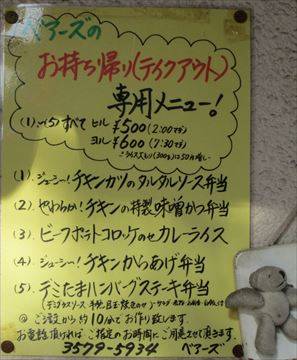 ベアーズの
お持ち帰り(テイクアウト)
専用メニュー!
(1)〜(5)すべて ヒル ¥500(2:00まで)
ヨル ¥600(7:30まで)
ライス大もり(300g)は50円増し
(1). ジューシー!チキンカツのタルタルソース弁当
(2). やわらか!チキンの特製味噌かつ弁当
(3). ビーフポテトコロッケのせカレーライス
(4). ジューシー!チキンからあげ弁当
(5). デミたまハンバーグステーキ弁当
(デミグラスソース
@ ご注文から約10分でお作り致します。
お電話頂ければ、ご指定のお時間にご用意させて頂きます。
3579-5934 ベアーズ